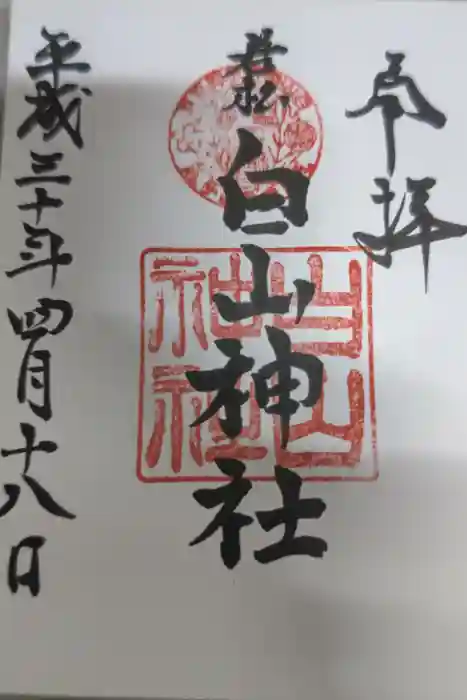 奉拝
白山神社
白山
神社
平成三十年四月十八日